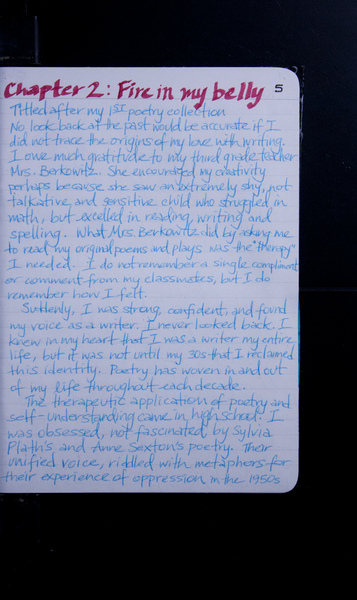 Chapter 2: Fire in my belly 5
Titled after my 1ST poetry collection
No look back at the past would be accurate if I
did not trace the origins of my love with writing.
I owe much gratitude to my third grade teacher
Mrs. Berkowitz. She encouraged my creativity
perhaps because she saw an extremely shy, not
talkative, and sensitive child who struggled in
math, but excelled in reading, writing and
spelling. What Mrs. Berkowitz did by asking me
to read my original poems and plays was the "therapy"
I needed. I do not remember a single compliment
or comment from my classmates, but I do
remember how I felt.
Suddenly, I was strong, confident, and found
my voice as a writer. I never looked back. I
knew in my heart that I was a writer my entire
life, but it was not until my 30s that I reclaimed
this identity. Poetry has woven in and out
of my life throughout each decade.
The therapeutic application of poetry and
self-understanding came in high school. I
was obsessed, not fascinated, by Sylvia
Plath's and Anne Sexton's poetry. Their
unified voice, riddled with metaphors for
their experience of oppression in the 1950s